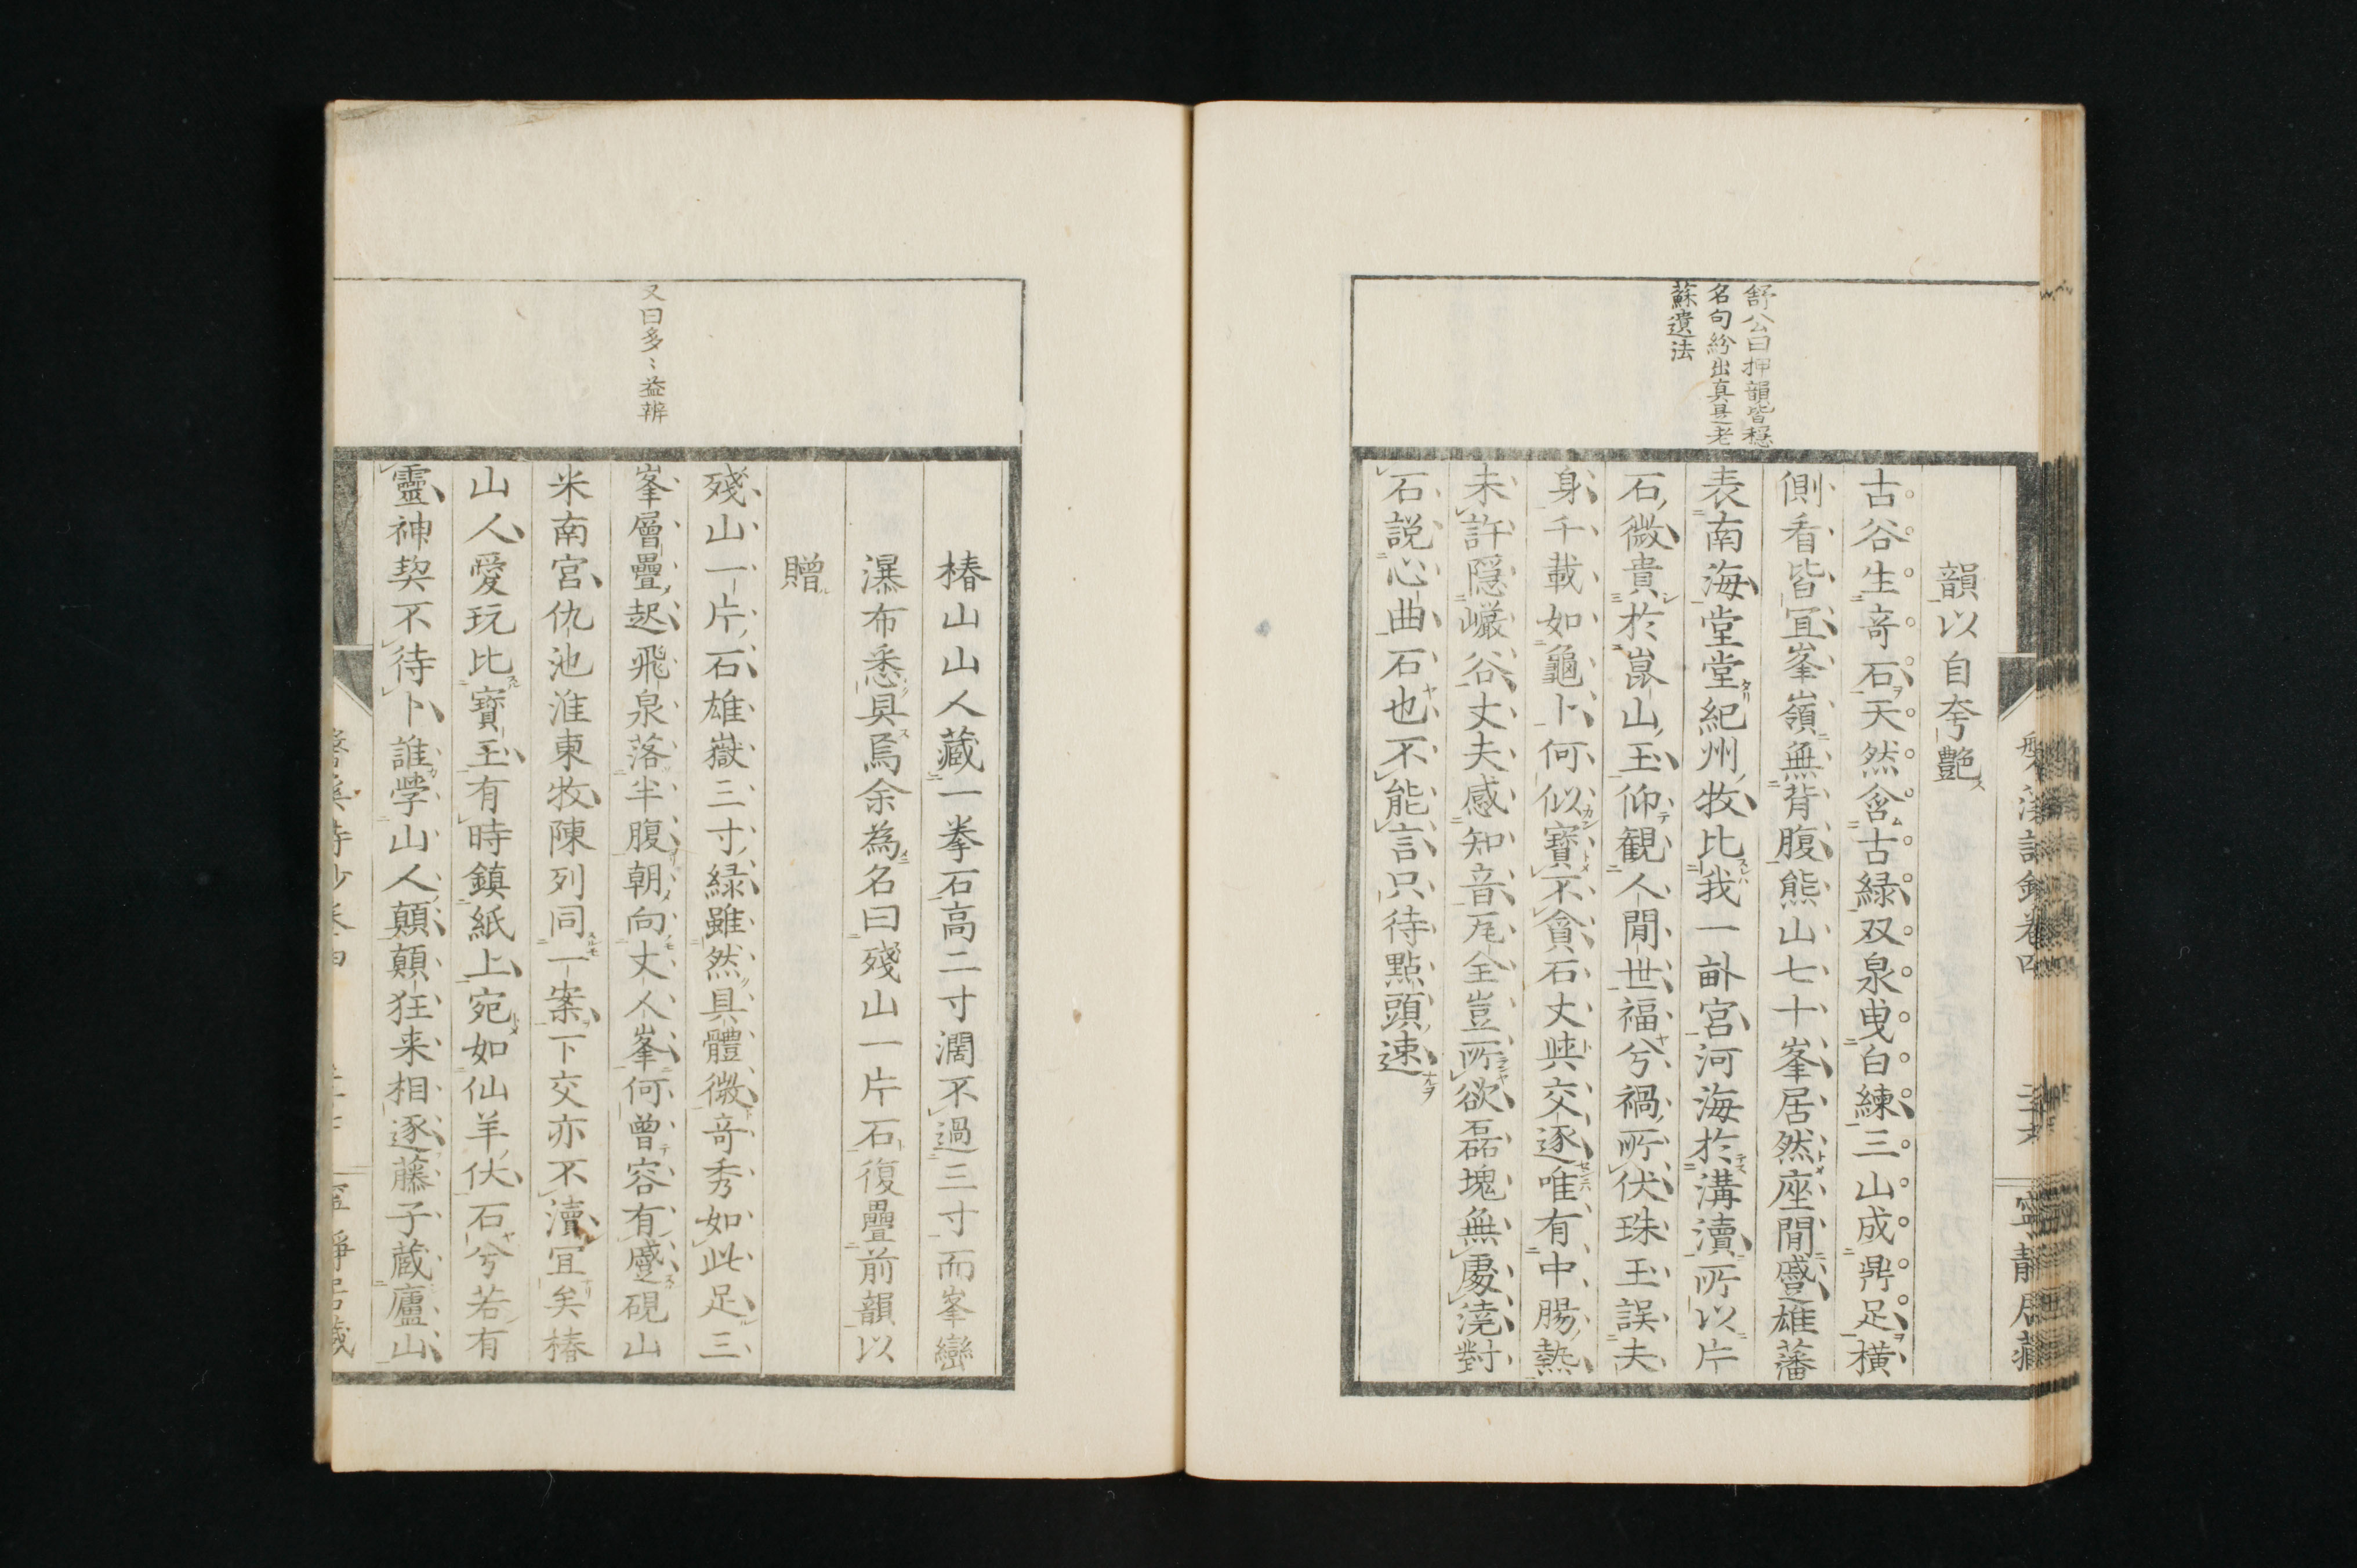 舒公曰押韻皆穏
名句紛出真是老
蘇遺法
韻以自夸艶
古谷生奇石天然含古緑双泉曳白練三山成鼎足横
側看皆宜峯嶺無背腹熊山七十峯居然座間蹙雄藩
表南海堂堂紀州牧比我一畝宮河海於溝瀆所以片
石微貴於崑山玉仰観人間世福兮禍所伏珠玉誤夫
身千載如龜卜何似寶不貪石丈與交逐唯有中腸熱
未許隠巖谷丈夫感知音瓦全豈所欲磊塊無處澆對
石説心曲石也不能言只待點頭速
又曰多〻益辨
椿山山人藏一拳石高二寸濶不過三寸而峯巒
瀑布悉具焉余為名曰殘山一片石復疊前韻以
贈
殘山一片石雄嶽三寸緑雖然具體微奇秀如此足三
峯層疊起飛泉落半腹朝向丈人峯何曽容有蹙硯山
米南宮仇池淮東牧陳列同一案下交亦不瀆宜矣椿
山人愛玩比寶玉有時鎮紙上宛如仙羊伏石兮若有
靈神契不待卜誰学山人顛顛狂来相逐藤子蔵廬山